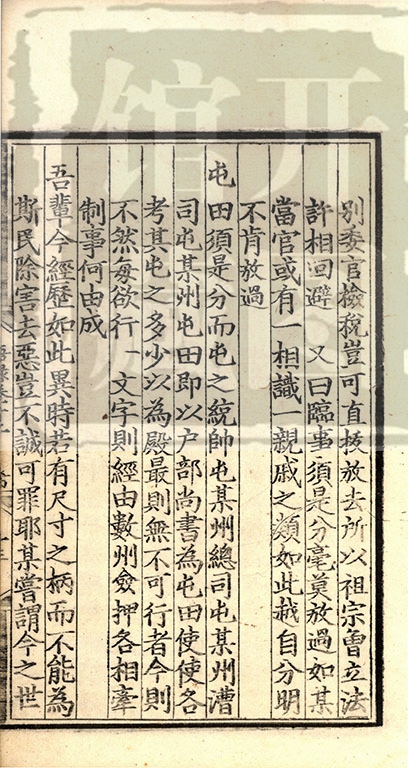 別委官檢稅豈可直拔放去所以祖宗曾立法
許相回避 又曰臨事須是分毫莫放過如某
當官或有一相識一親戚之類如此越自分明
不肯放過
屯田須是分而屯之統帥屯某州總司屯某州漕
司屯某州屯田即以户部尚書為屯田使使各
考其屯之多少以為殿最則無不可行者今則
不然每欲行一文字則經由數州僉押各相牽
制事何由成
吾輩今經歷如此異時若有尺寸之柄而不能為
斯民除害去惡豈不誠可罪耶某嘗謂今之世